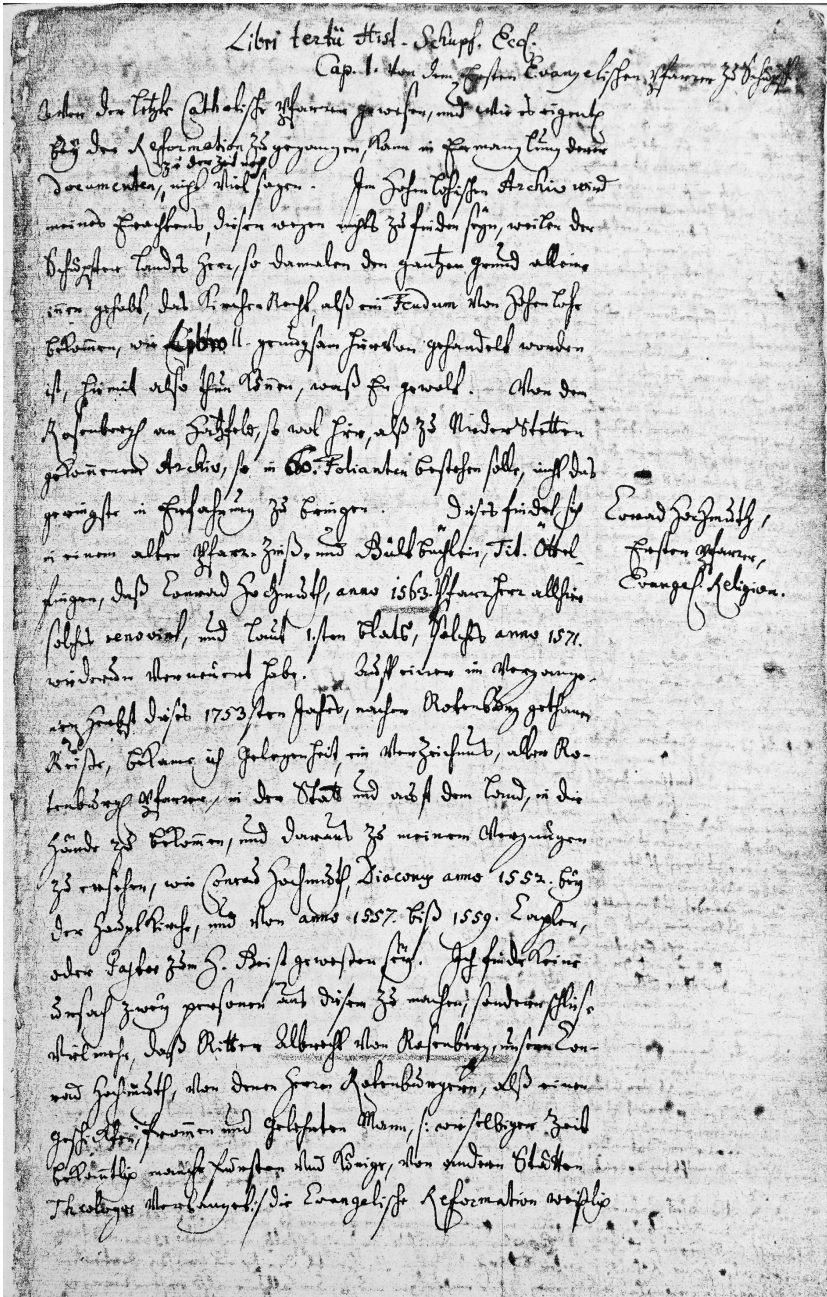 Libri tertii Hist. Schupf. Eccl.
Cap. 1. Von dem Ersten Evangelischen Pfarrer zu Schüpf.
Wer der letzte Catholische Pfarrer gewesen, und wie es eigentl.
bey der Reformation zugegangen, kann in Ermanglung derer
zu der Zeit
Documenten, nicht viel sagen. Im Hohenlohischen Archiv wird
meines Erachtens, dieser wegen nichts zu finden seyn, weilen der
Schüpfer Landes Herr, so damalen den gantzen grund allein
innen gehabt, das Kirchen Recht, alß ein Feudum von Hohenlohe
bekommen, wie Libro II. genugsam hiervon gehandelt worden
ist, hiemit also thun können, waß Er gewolt. Von dem
Rosenberg. an Hatzfeld, so wol hier, alß zu Nieder Stetten
gekommenem Archiv, so in 60. Folianten bestehen solle, nicht das
geringste in Erfahrung zu bringen. Dieses findet sich
in einem alten Pfarr- Zinß- und Gült büchlein, Tit. Öttel-
fingen, daß Conrad Hochmuth, anno 1563. Pfarrherr allhier
solches renovirt, und laut 1.sten blats, solches anno 1571.
wiederum verneuert habe. Auff einer im vergange-
nen Herbst dieses 1753sten Jahrs, nacher Rotenburg gethanen
Reiße, bekame ich Gelegenheit, ein Verzeichnus, aller Ro-
tenburg. Pfarrer, in der Statt und auff dem Land, in die
Hände zu bekommen, und daraus zu meinem Vergnügen
zu ersehen, wie Conrad Hochmuth, Diaconus anno 1552. bey
der Haupt Kirche, und von anno 1557. biß 1559. Caplan,
oder Pastor zum H. Geist gewesten sey. Ich finde keine
ursach zwey personen aus diesem zu machen, sondern schliese
vielmehr, daß Ritter Albrecht von Rosenberg, unsern Con-
rad Hochmuth, von denen Herrn Rotenburgern, alß einen
geschickten, frommen und gelehrten Mann, /: wie selbiger Zeit
bekanntlich manche Fürsten und Könige, von andern Stätten
Theologos verlanget :/ die Evangelische Reformation weißlich
Conrad Hochmuth,
Erster Pfarrer,
Evangel. Religion.